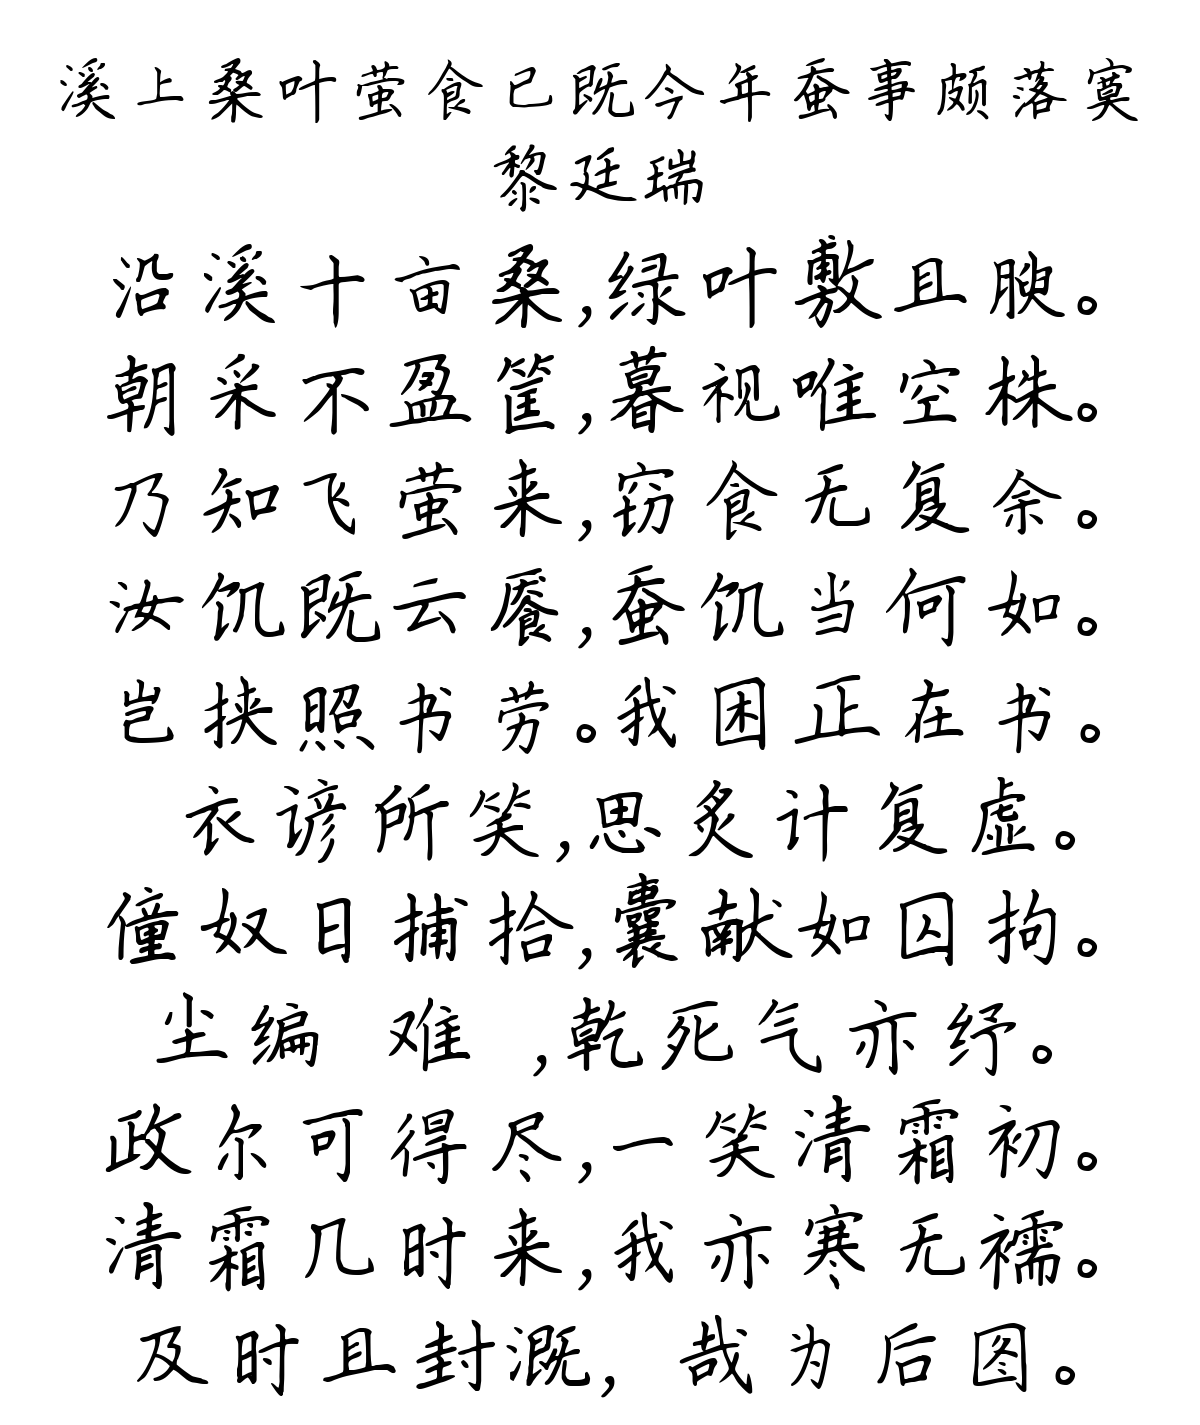 溪上桑叶萤食已既今年蚕事颇落寞
黎廷瑞
沿溪十亩桑,绿叶敷且腴。
朝采不盈筐,暮视唯空株。
乃知飞萤来,窃食无复余。
汝饥既云餍,蚕饥当何如。
岂挟照书劳。我困正在书。
衣谚所笑,思炙计复虚。
僮奴日捕拾,囊献如囚拘。
尘编 难 ,乾死气亦纾。
政尔可得尽,一笑清霜初。
清霜几时来,我亦寒无襦。
及时且封溉, 哉为后图。